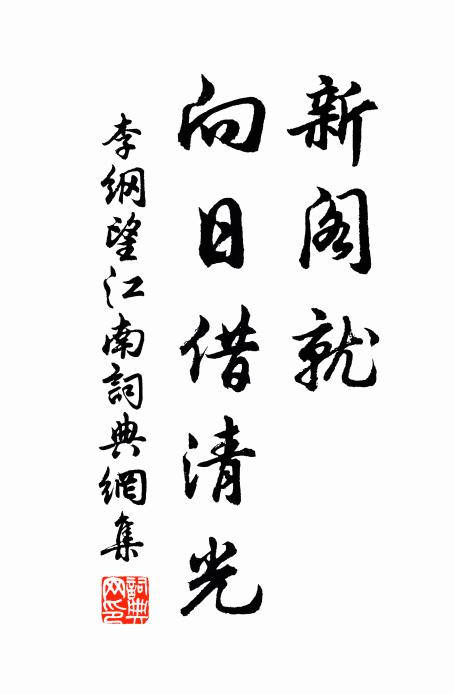 新阁就
向日借清光
李纲望江南詞典網集
詞典网印